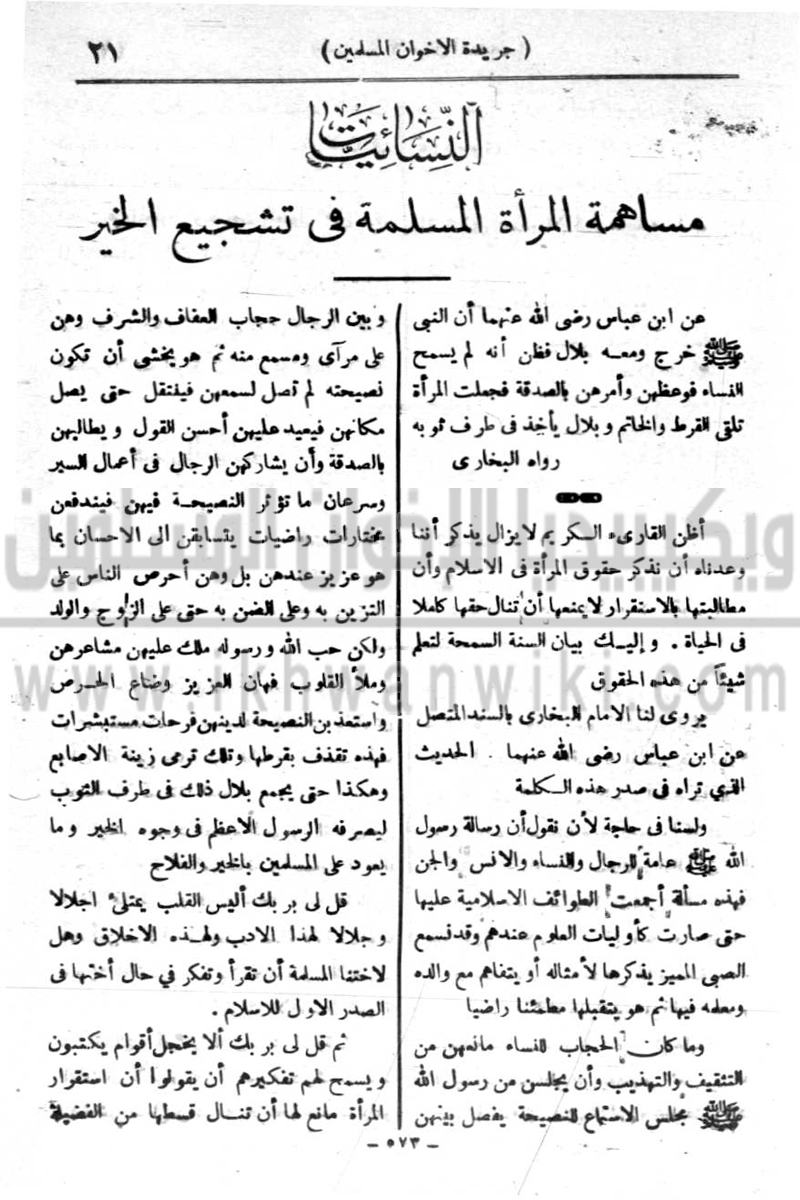 ٢١
( جريدة الاخوان المسلمين )
النسائيات
مساهمة المرأة المسلمة فى تشجيع الخير
عن ابن عباس رضى الله عنهما أن النبى
ﷺ خرج ومعه بلال فظن أنه لم يسمح
النساء فوعظهن وأمرهن بالصدقة فجعلت المرأة
تلقى القرط والخاتم وبلال يأخذ فى طرف ثوبه
رواه البخارى
أظن القارىء الكريم لا يزال يذكر أننا
وعدناه أن نذكر حقوق المرأة فى الاسلام وأن
مطالبتها بالاستقرار لا يمنعها أن تنال حقها كاملا
فى الحياة . وإليك بيان السنة السمحة لتعلم
شيئاً من هذه الحقوق
يروى لنا الامام البخارى بالسند المتصل
عن ابن عباس رضى الله عنهما . الحديث
الذى تراه فى صدر هذه الكلمة
ولسنا فى حاجة لأن نقول أن رسالة رسول
الله ﷺ عامة للرجال والنساء والانس والجن
فهذه مسألة أجمعت الطوائف الاسلامية عليها
حتى صارت كأوليات العلوم عندهم وقد نسمع
الصبى المميز يذكرها لأمثاله أو يتفاهم مع والده
ومعلمه فيها ثم هو يتقبلها مطمئنا راضيا
وما كان الحجاب للنساء مانعهن من
التثقيف والتهذيب وأن يجلسن من رسول الله
ﷺ مجلس الاستماع للنصيحة يفصل بينهن
وبين الرجال حجاب العفاف والشرف وهن
على مرآى ومسمع منه ثم هو يخشى أن تكون
نصيحته لم تصل لسمعهن فينتقل حتى يصل
مكانهن فيعيد عليهن أحسن القول ويطالبهن
بالصدقة وأن يشاركن الرجال فى أعمال السير
وسرعان ما تؤثر النصيحة فيهن فيندفعن
مختارات راضيات يتسابقن الى الاحسان بما
هو عزيز عندهن بل وهن أحرص الناس على
التزين به وعلى الضن به حتى على الزوج والولد
ولكن حب الله ورسوله ملك عليهن مشاعرهن
وملأ القلوب فهان العزيز وضاع الحرص
واستعذبن النصيحة لدينهن فرحات مستبشرات
فهذه تقذف بقرطها وتلك ترمى زينة الاصابع
وهكذا حتى يجمع بلال ذلك فى طرف الثوب
ليصرفه الرسول الاعظم فى وجوه الخير وما
يعود على المسلمين بالخير والفلاح
قل لى بربك أليس القلب يمتلئ اجلالا
وجلالا لهذا الادب ولهذه الاخلاق وهل
لاختنا المسلمة أن تقرأ وتفكر في حال أختها فى
الصدر الاول للاسلام .
ثم قل لى بربك ألا يخجل أقوام يكتبون
ويسمح لهم تفكيرهم أن يقولوا أن استقرار
المرأة مانع لها أن تنال قسطها من الفضيلة
— ٥٧٣ —
ويكيبيديا الإخوان المسلمين
www.ikhwanwiki.com